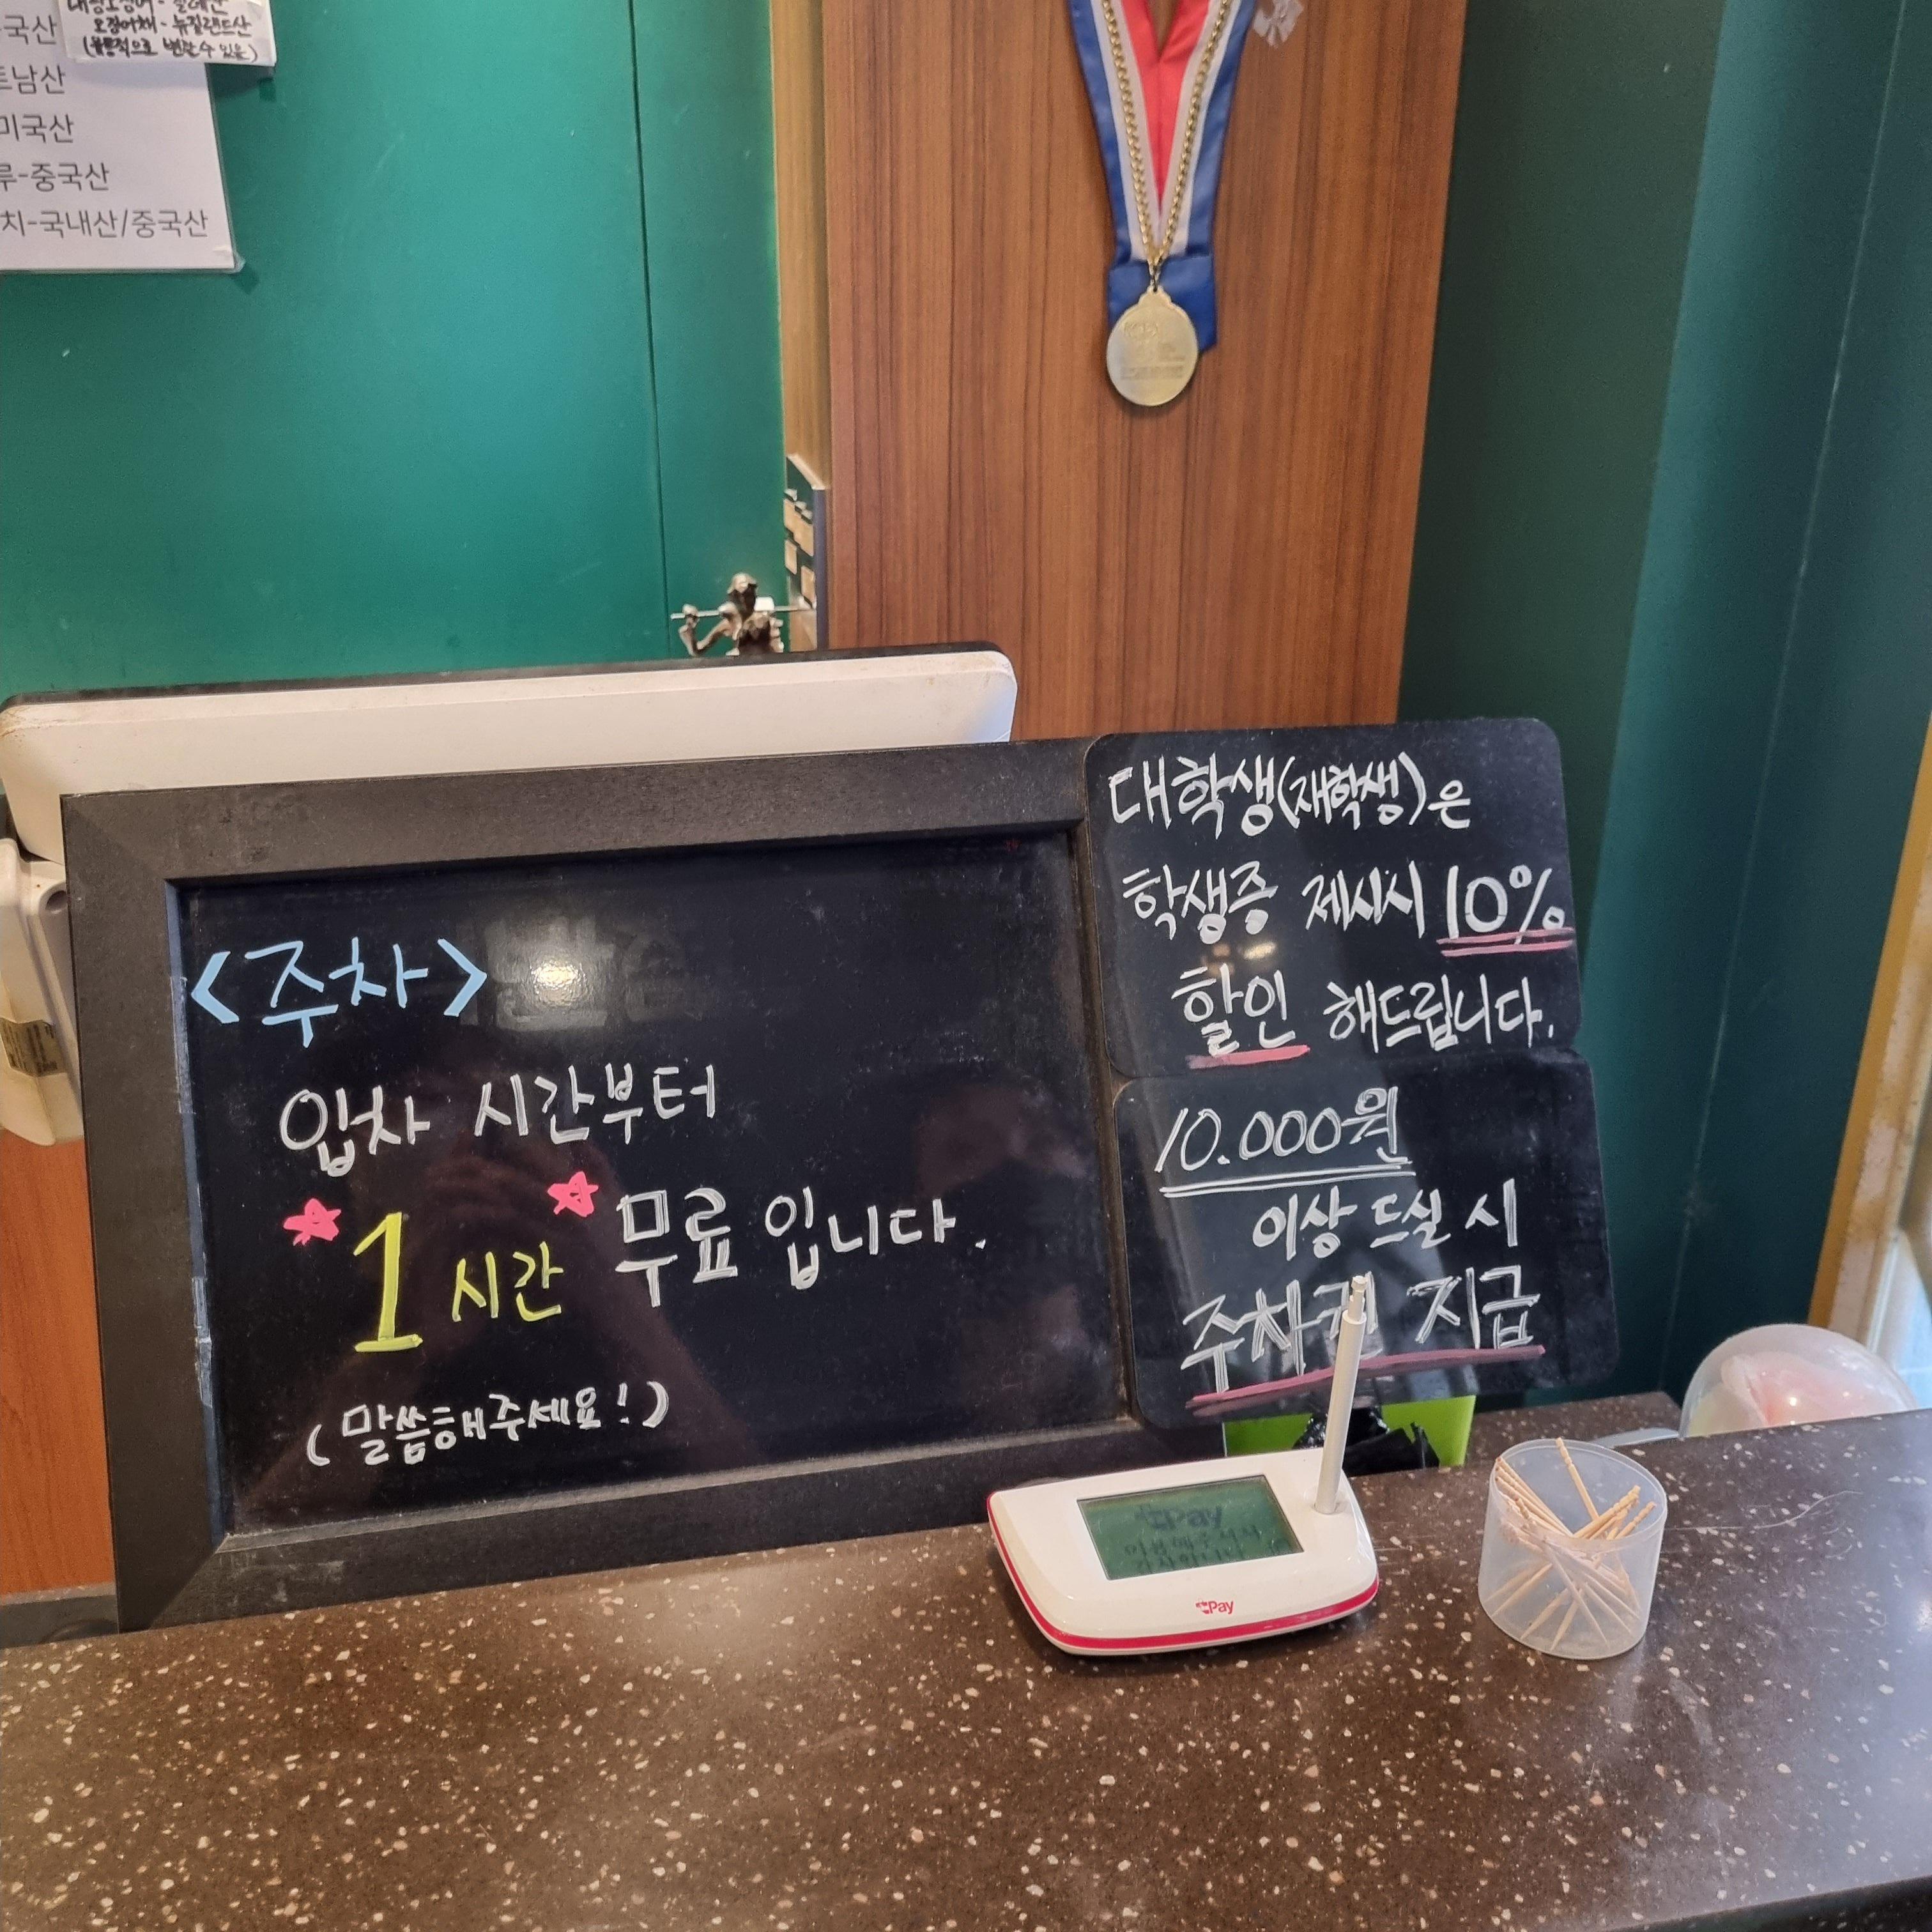 오징어채-뉴질랜드산
(유동적으로 변할 수 있음)
국산
남산
미국산
루-중국산
치-국내산/중국산
<주차>
입차 시간부터
1시간 무료입니다.
(말씀해주세요!)
대학생(재학생)은
학생증 제시시 10%
할인 해드립니다.
10.000원
이상 드실 시
주차권 지급
Pay
Pay